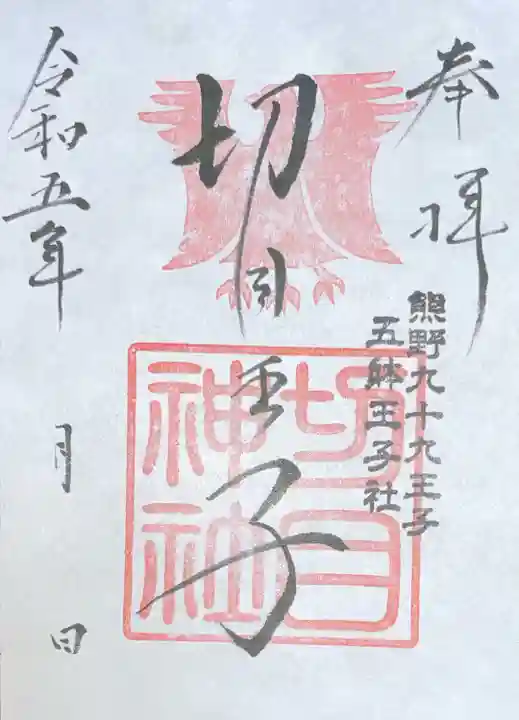 奉拝
熊野九十九王子
五躰王子社
切目王子
切目
神社
令和五年
月
日